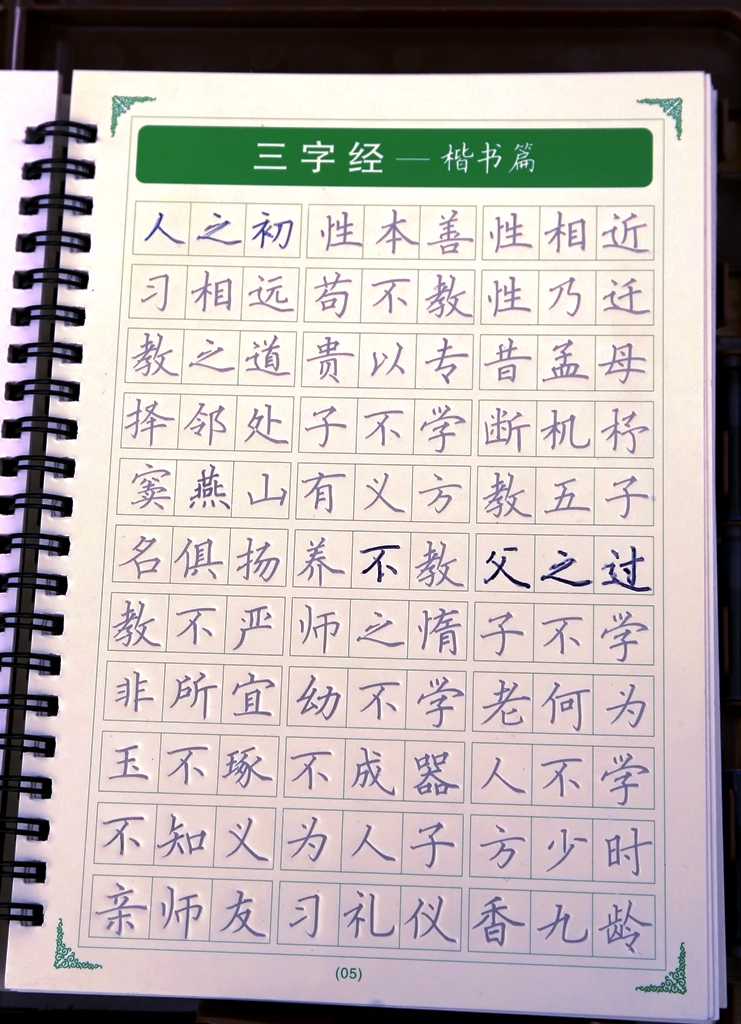 三字经—楷书篇
人之初 性本善 性相近
习相远 苟不教 性乃迁
教之道 贵以专 昔孟母
择邻处 子不学 断机杼
窦燕山 有义方 教五子
名俱扬 养不教 父之过
教不严 师之惰 子不学
非所宜 幼不学 老何为
玉不琢 不成器 人不学
不知义 为人子 方少时
亲师友 习礼仪 香九龄
(05)